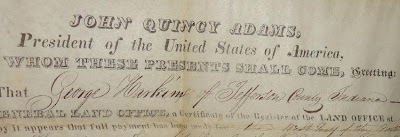 JOHN QUINCY ADAMS,
President of the United States of America,
WHOM THESE PRESENTS SHALL COME, Greeting:
That George of Jefferson County Indiana
GENERAL LAND OFFICE, a Certificate of the Register of the LAND OFFICE at
it appears that full payment has been made